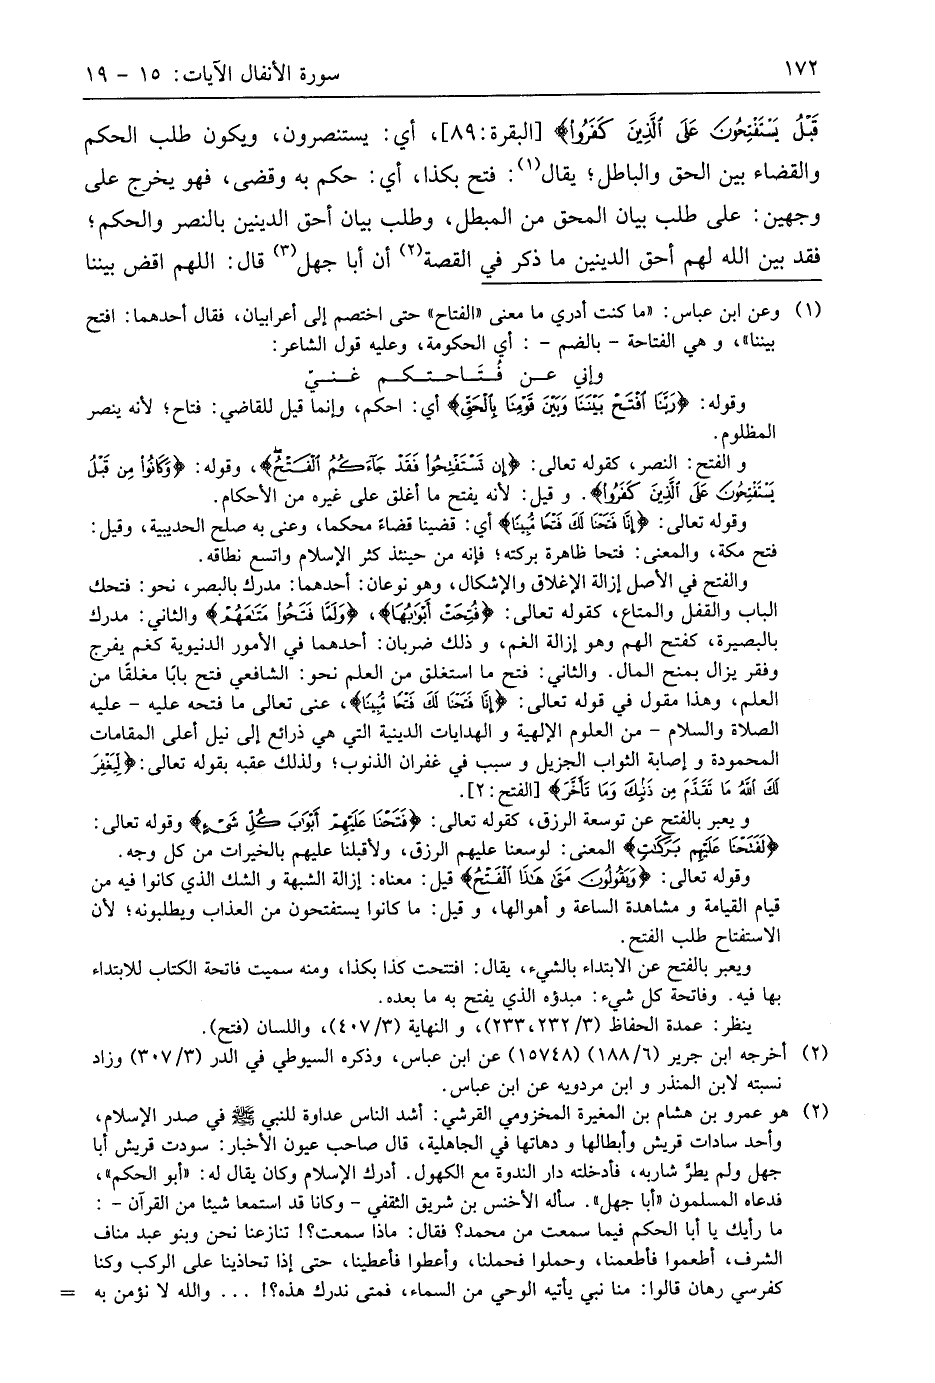 ١٧٢
سورة الأنفال الآيات: ١٥ - ١٩
قَبْلُ يَسْتَفْتِحُونَ عَلَى ٱلَّذِينَ كَفَرُوا﴾ [البقرة:٨٩]، أي: يستنصرون، ويكون طلب الحكم
والقضاء بين الحق والباطل؛ يقال(١): فتح بكذا، أي: حكم به وقضى، فهو يخرج على
وجهين: على طلب بيان المحق من المبطل، وطلب بيان أحق الدينين بالنصر والحكم؛
فقد بين الله لهم أحق الدينين ما ذكر في القصة(٢) أن أبا جهل(٣) قال: اللهم اقض بيننا
(١) وعن ابن عباس: «ما كنت أدري ما معنى «الفتاح» حتى اختصم إلى أعرابيان، فقال أحدهما: افتح
بيننا»، و هي الفتاحة - بالضم - : أي الحكومة، وعليه قول الشاعر:
وإني عـن فُـتَـاحـتـكـم غـنـيّ
وقوله: ﴿رَبَّنَا ٱفْتَحْ بَيْنَنَا وَبَيْنَ قَوْمِنَا بِٱلْحَقِّ﴾ أي: احكم، وإنما قيل للقاضي: فتاح؛ لأنه ينصر
المظلوم.
و الفتح: النصر، كقوله تعالى: ﴿إِن تَسْتَفْتِحُوا فَقَدْ جَآءَكُمُ ٱلْفَتْحُ﴾، وقوله: ﴿وَكَانُوا مِن قَبْلُ
يَسْتَفْتِحُونَ عَلَى ٱلَّذِينَ كَفَرُوا﴾. و قيل: لأنه يفتح ما أغلق على غيره من الأحكام.
وقوله تعالى: ﴿إِنَّا فَتَحْنَا لَكَ فَتْحًا مُّبِينًا﴾ أي: قضينا قضاءً محكما، وعنى به صلح الحديبية، وقيل:
فتح مكة، والمعنى: فتحا ظاهرة بركته؛ فإنه من حينئذ كثر الإسلام واتسع نطاقه.
والفتح في الأصل إزالة الإغلاق والإشكال، وهو نوعان: أحدهما: مدرك بالبصر، نحو: فتحك
الباب والقفل والمتاع، كقوله تعالى: ﴿فُتِحَتْ أَبْوَابُهَا﴾، ﴿وَلَمَّا فَتَحُوا مَتَاعَهُمْ﴾ والثاني: مدرك
بالبصيرة، كفتح الهم وهو إزالة الغم، و ذلك ضربان: أحدهما في الأمور الدنيوية كغم يفرج
وفقر يزال بمنح المال. والثاني: فتح ما استغلق من العلم نحو: الشافعي فتح بابًا مغلقًا من
العلم، وهذا مقول في قوله تعالى: ﴿إِنَّا فَتَحْنَا لَكَ فَتْحًا مُّبِينًا﴾، عنى تعالى ما فتحه عليه - عليه
الصلاة والسلام - من العلوم الإلهية و الهدايات الدينية التي هي ذرائع إلى نيل أعلى المقامات
المحمودة و إصابة الثواب الجزيل و سبب في غفران الذنوب؛ ولذلك عقبه بقوله تعالى:﴿لِيَغْفِرَ
لَكَ ٱللَّهُ مَا تَقَدَّمَ مِن ذَنۢبِكَ وَمَا تَأَخَّرَ﴾ [الفتح:٢].
و يعبر بالفتح عن توسعة الرزق، كقوله تعالى: ﴿فَتَحْنَا عَلَيْهِمْ أَبْوَابَ كُلِّ شَيْءٍ﴾ وقوله تعالى:
﴿لَفَتَحْنَا عَلَيْهِم بَرَكَاتٍ﴾ المعنى: لوسعنا عليهم الرزق، ولأقبلنا عليهم بالخيرات من كل وجه.
وقوله تعالى: ﴿وَيَقُولُونَ مَتَىٰ هَٰذَا ٱلْفَتْحُ﴾ قيل: معناه: إزالة الشبهة و الشك الذي كانوا فيه من
قيام القيامة و مشاهدة الساعة و أهوالها، و قيل: ما كانوا يستفتحون من العذاب ويطلبونه؛ لأن
الاستفتاح طلب الفتح.
ويعبر بالفتح عن الابتداء بالشيء، يقال: افتتحت كذا بكذا، ومنه سميت فاتحة الكتاب للابتداء
بها فيه. وفاتحة كل شيء: مبدؤه الذي يفتح به ما بعده.
ينظر: عمدة الحفاظ (٣/ ٢٣٢، ٢٣٣)، و النهاية (٤٠٧/٣)، واللسان (فتح).
(٢) أخرجه ابن جرير (١٨٨/٦) (١٥٧٤٨) عن ابن عباس، وذكره السيوطي في الدر (٣٠٧/٣) وزاد
نسبته لابن المنذر و ابن مردويه عن ابن عباس.
(٢) هو عمرو بن هشام بن المغيرة المخزومي القرشي: أشد الناس عداوة للنبي ﷺ في صدر الإسلام،
وأحد سادات قريش وأبطالها و دهاتها في الجاهلية، قال صاحب عيون الأخبار: سودت قريش أبا
جهل ولم يطرَّ شاربه، فأدخلته دار الندوة مع الكهول. أدرك الإسلام وكان يقال له: «أبو الحكم»،
فدعاه المسلمون «أبا جهل». سأله الأخنس بن شريق الثقفي - وكانا قد استمعا شيئا من القرآن - :
ما رأيك يا أبا الحكم فيما سمعت من محمد؟ فقال: ماذا سمعت؟! تنازعنا نحن وبنو عبد مناف
الشرف، أطعموا فأطعمنا، وحملوا فحملنا، وأعطوا فأعطينا، حتى إذا تحاذينا على الركب وكنا
كفرسي رهان قالوا: منا نبي يأتيه الوحي من السماء، فمتى ندرك هذه؟! ... والله لا نؤمن به =